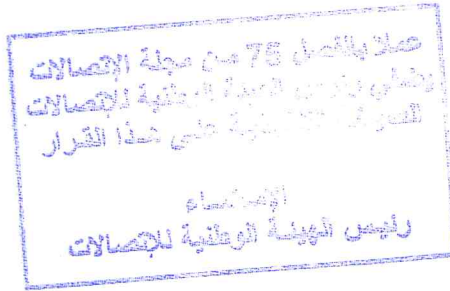 عملا بالفصل 75 من مجلة الإتصالات
رئيس الهيئة الوطنية للإتصالات
على هذا القرار
الإمضاء
رئيس الهيئة الوطنية للإتصالات